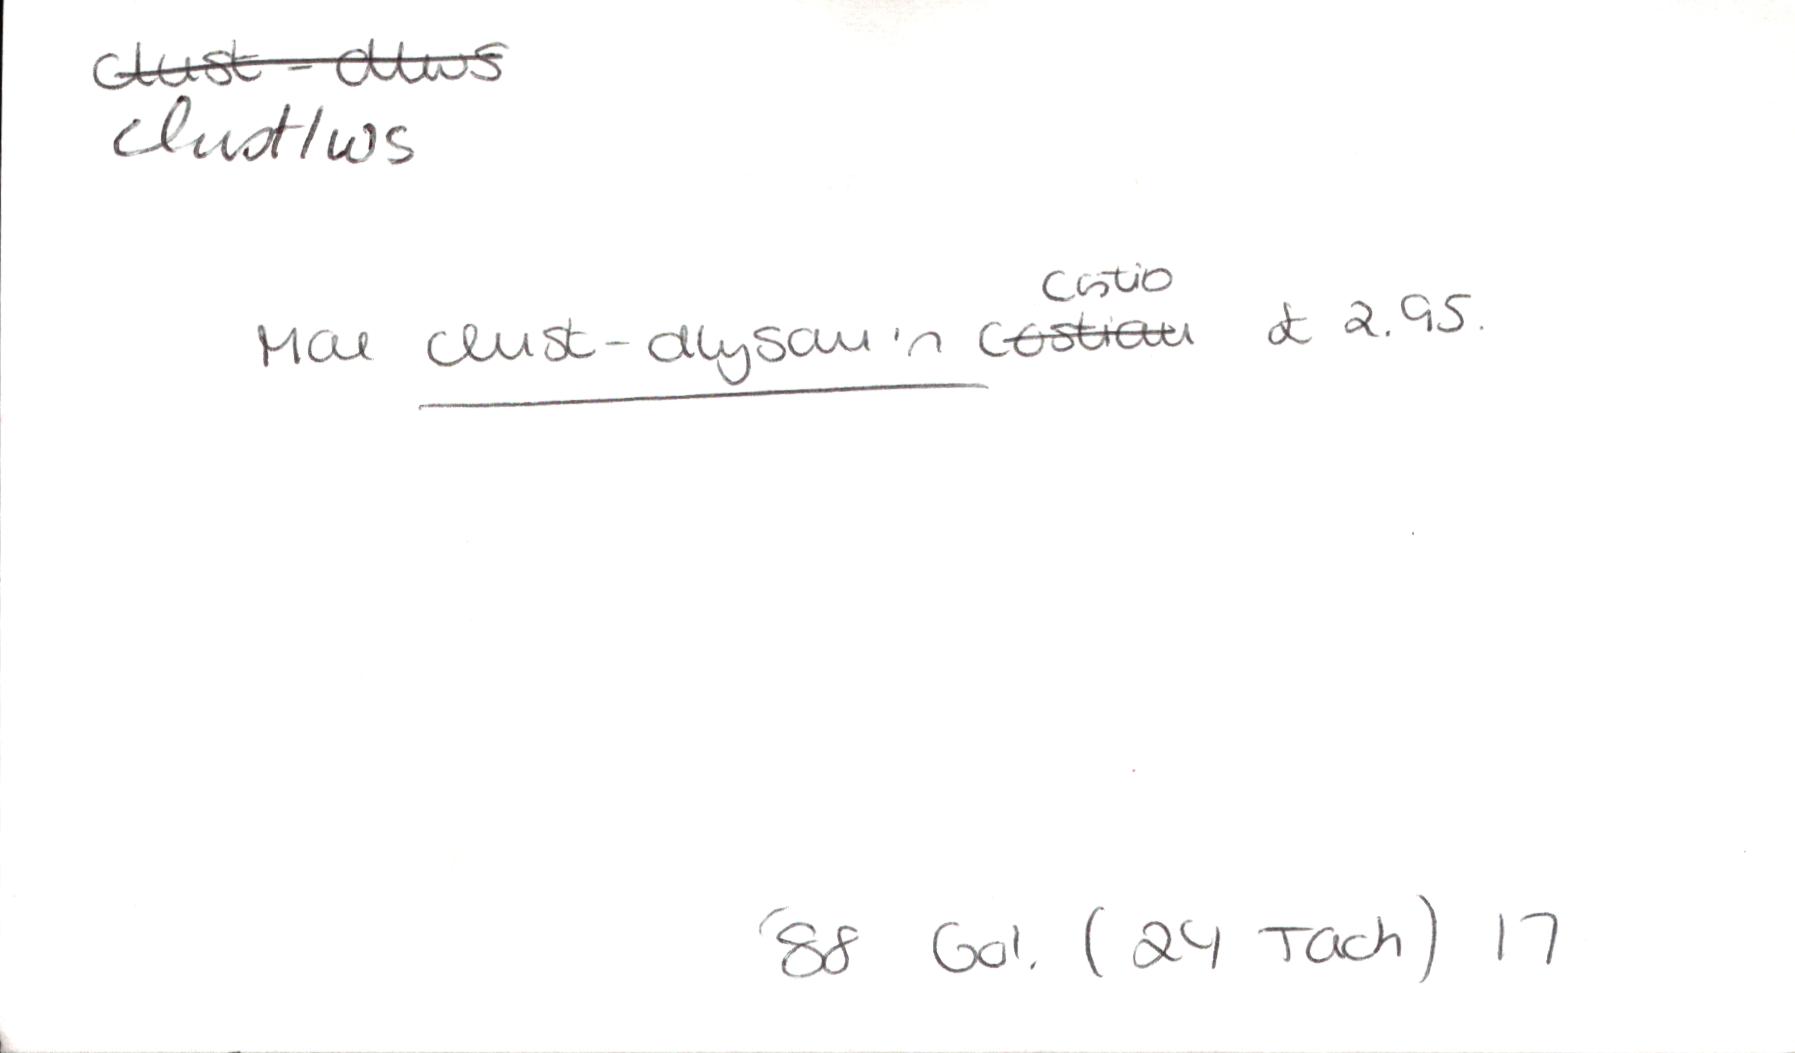 clust-dlws
clustlws
costio
Mae clust-dlysau'n costiau £2.95.
'88 Gol. (24 Tach) 17